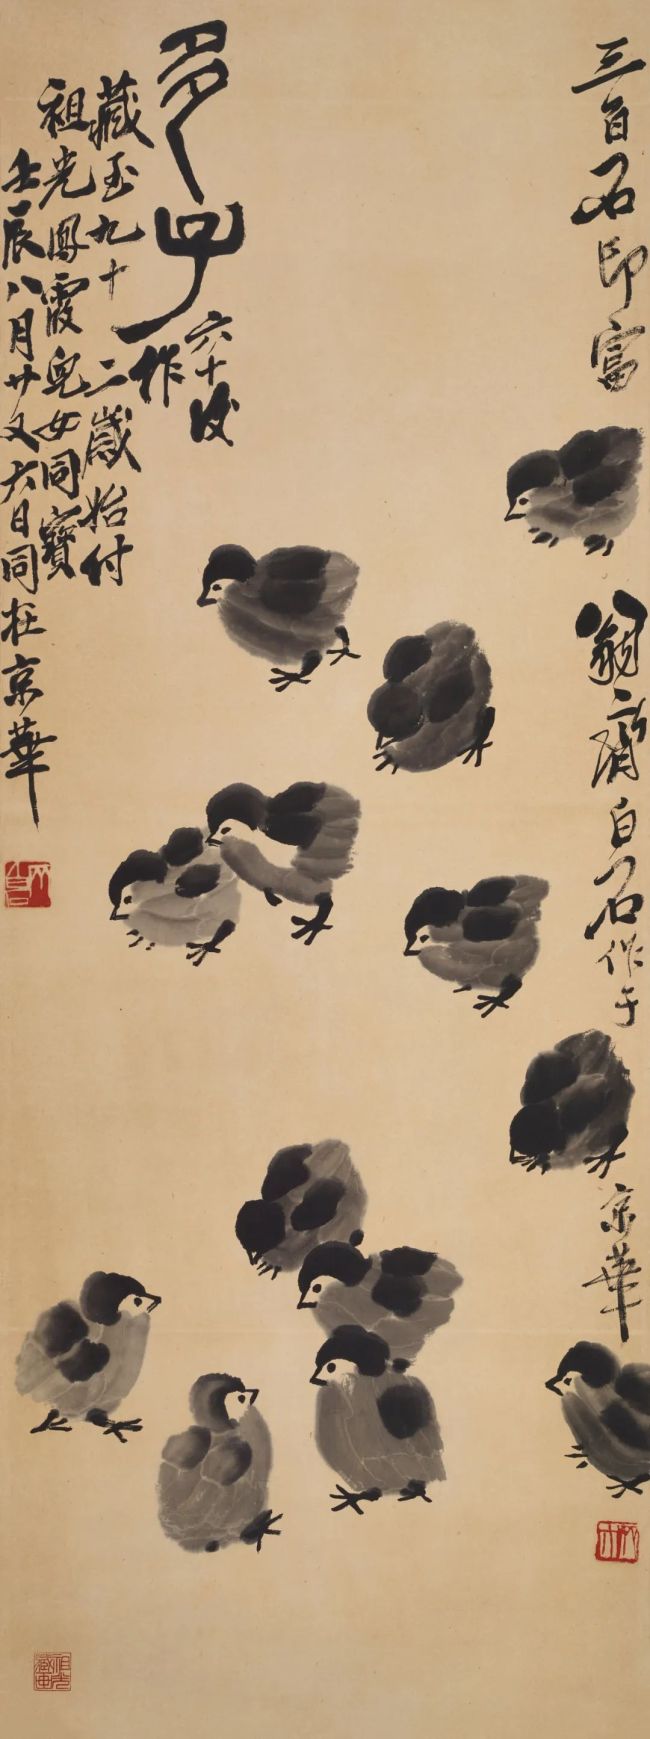 三百石印富翁齊白石作于京華
多子
六十後作
藏至九十二歲始付
祖光鳳霞兒女同寶
壬辰八月廿又六日同在京華